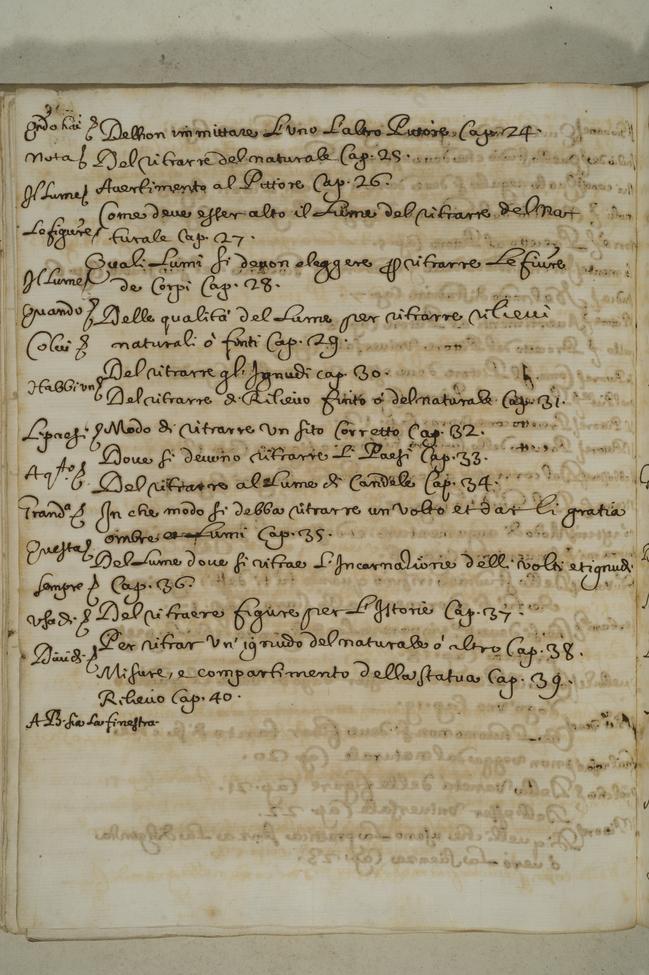 Del non immittare L'uno L'altro Pittore Cap. 24.
nota Del ritrarre del naturale Cap. 25.
Il Lume Avertimento al Pittore Cap. 26.
Come deve esser alto il Lume del ritrarre del Na=
Le figure turale Cap. 27.
Quali Lumi si devon eleggere ritrarre Le fiure
Il Lume de Corpi Cap. 28.
quando Delle qualità del Lume per ritrarre rilievi
Colui naturali ò finti Cap. 29.
Del ritrarre gl'Ignudi cap. 30.
Habbi un Del ritrarre di Rilievo finto ò del naturale Cap. 31.
Li paesi Modo di ritrarre un sito Corretto Cap. 32.
Dove si devino ritrarre Li Paesi Cap. 33.
Del ritrarre al Lume di Candele Cap. 34.
Grand.a In che modo si debba ritrarre un volto et dar li gratia
ombre et Lumi Cap. 35.
Questa Del Lume dove si ritrae L'Incarnatione delli volti et ignudi
sempre Cap. 36.
Usa di Del ritraere figure per L'Istorie Cap. 37.
Per ritrar un' ignudo del naturale ò altro Cap. 38.
Davidi Misure, e compartimento della statua Cap. 39.
Rilievo Cap. 40.
A B. sia La finestra.